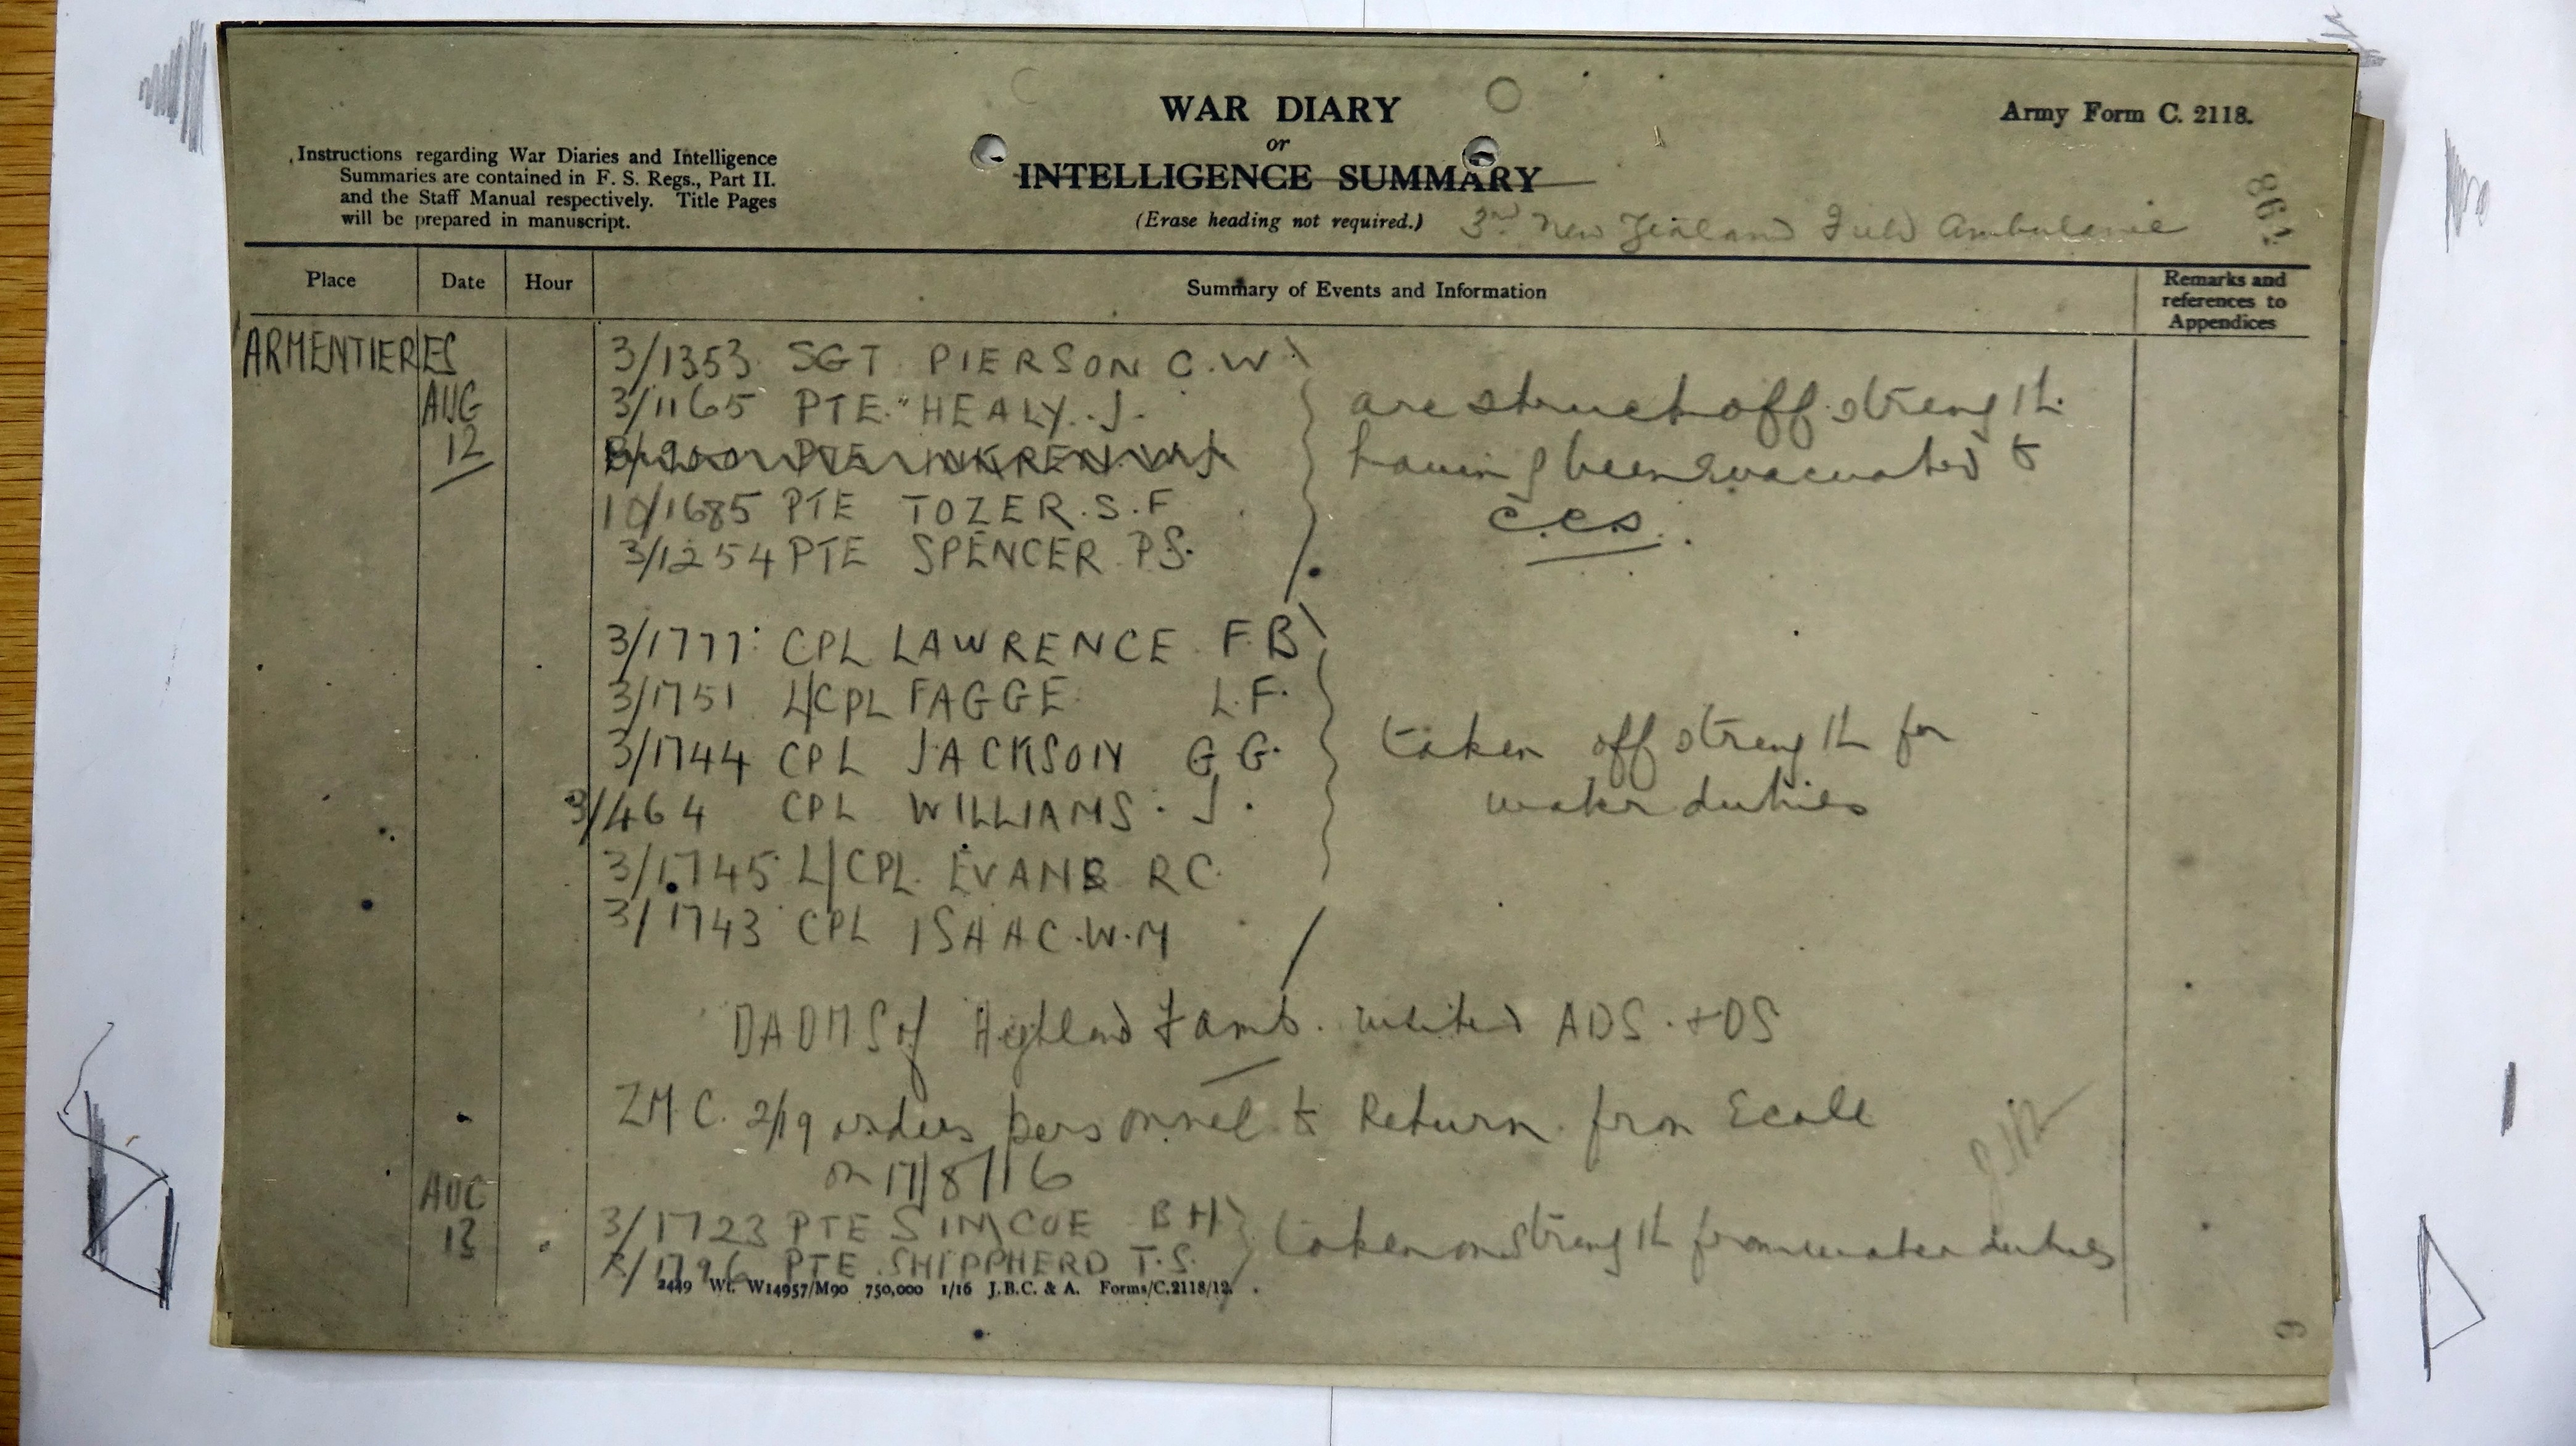 WAR DIARY
or
INTELLIGENCE SUMMARY
(Erase heading not required.)
Army Form C. 2118.
Instructions regarding War Diaries and Intelligence
Summaries are contained in F. S. Regs., Part II.
and the Staff Manual respectively. Title Pages
will be prepared in manuscript.
3rd New Zealand Field Ambulance
Place Date Hour Summary of Events and Information Remarks and references to Appendices
ARMENTIERES
AUG
12
3/1353 SGT PIERSON C.W
3/1165 PTE HEALY. J.
PTE
10/1685 PTE TOZER. S. F
3/1254 PTE SPENCER P.S.
are struck off strength
having been evacuated to
C.C.S.
3/1777 CPL LAWRENCE F.B
3/1751 L/CPL FAGGE L.F.
3/1744 CPL JACKSON G G.
3/464 CPL WILLIAMS. J.
3/1745 L/CPL EVANS R C.
3/1743 CPL ISAAC. W. M
taken off strength for
water duties
DADMS of Highland F Amb. visited ADS. + DS
ZMC. 2/19 orders personnel to Return from Ecole
on 17/8/16
AUG
13
3/1723 PTE SIMCOE B H
3/1796 PTE SHIPPHERD T.S.
taken on strength from water duties
2449 Wt. W14957/M90 750,000 1/16 J.B.C. & A. Forms/C.2118/12.